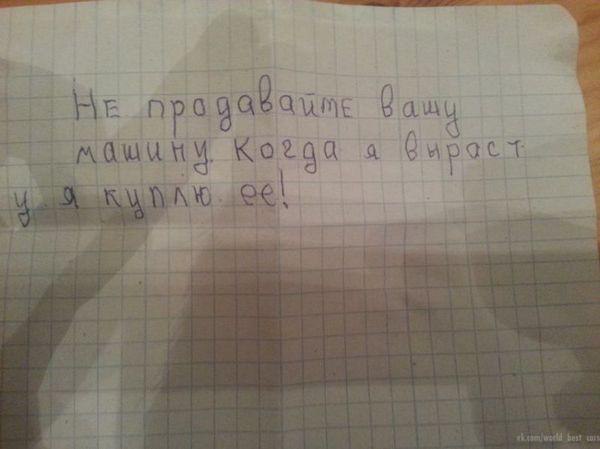 Не продавайте вашу
машину. Когда я выраст
у я куплю ее!
vk.com/world_best_cars